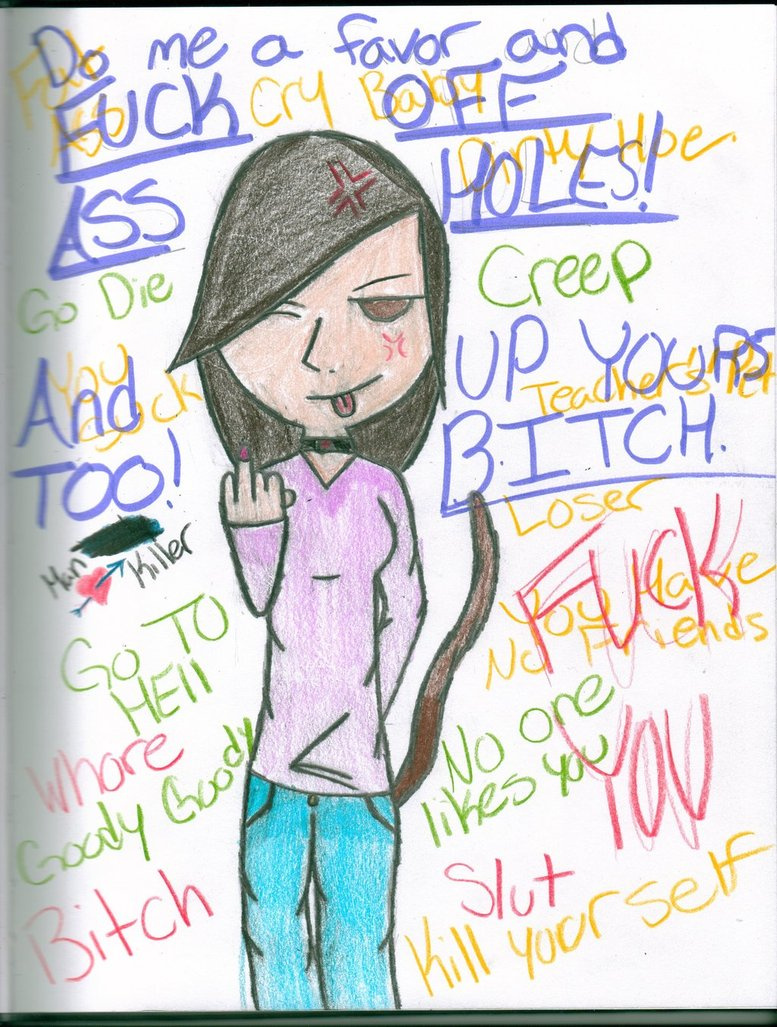 Do me a favor and
FUCK OFF
ASS HOLES!
Fat
Ass
Cry Baby
Dirty Hoe.
Go Die
Creep
You
Suck
AND
TOO!
UP YOURS
BITCH.
Teacher's Pet
Loser
Man Killer
FUCK
YOU
You Have
No Friends
GO TO
HEll
No one
likes you
Whore
Goody Goody
Slut
Bitch
Kill yourself